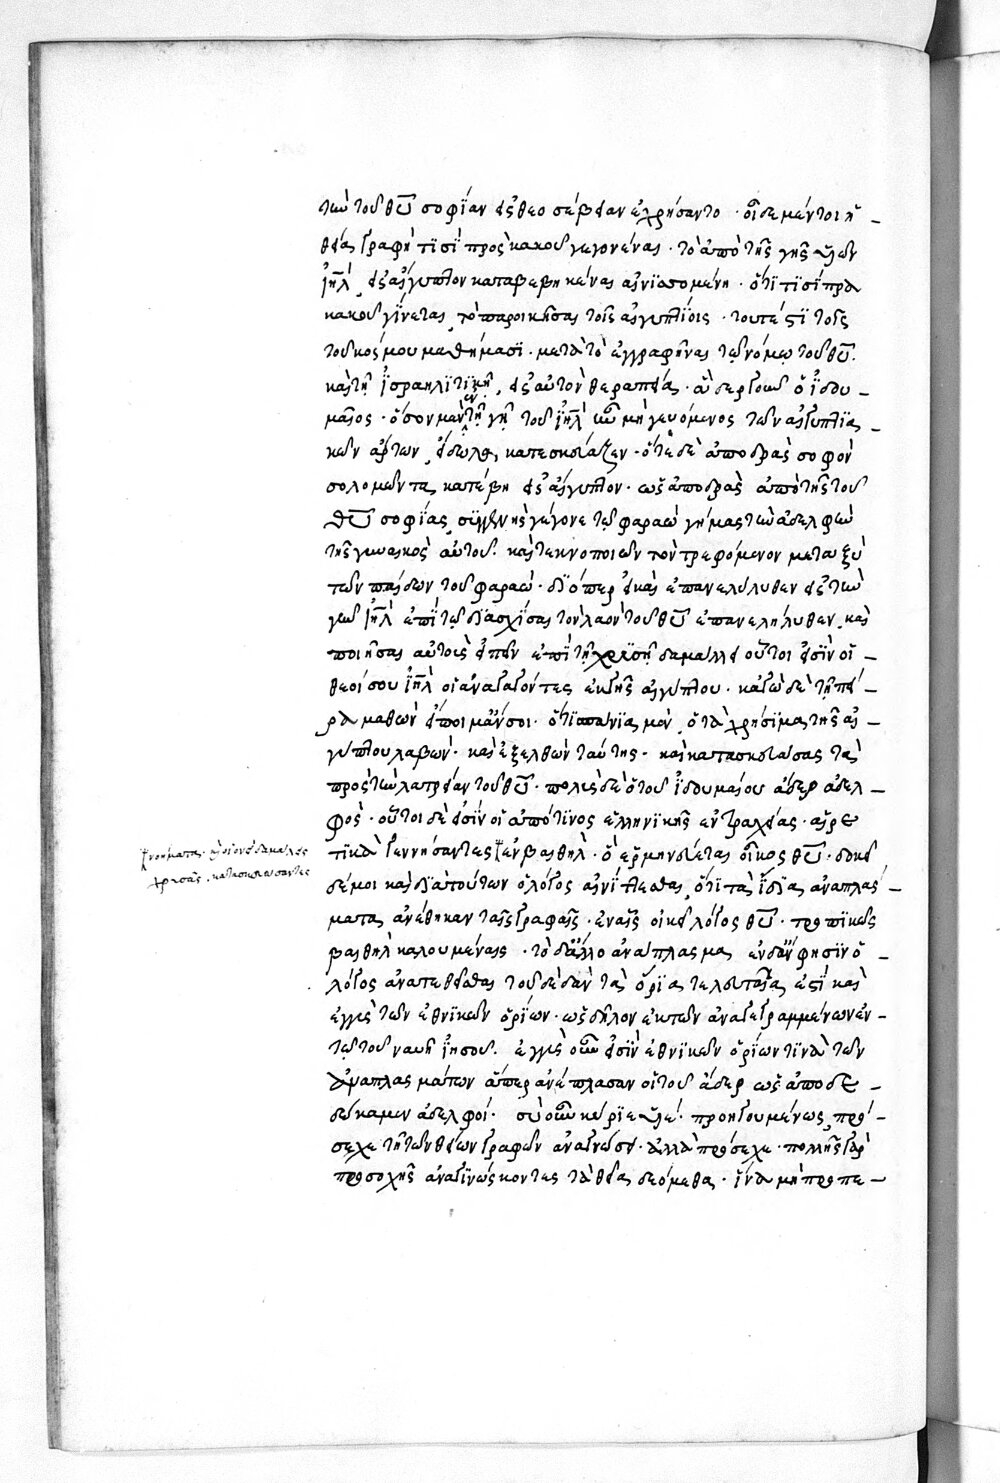 τὴν τοῦ θῦ σοφΐαν εἰς θεοσέβειαν ἐχρήσαντο · οἶδε μέντοι ἡ
θεία γραφή τϊσϊ πρὸς κακοῦ γεγονέναι · τὸ ἀπὸ τῆς γῆς υἱῶν
ἰη̅λ εἰς αἴγυπτον καταβεβηκέναι αἰνϊσομένη · ὅτι τϊσὶ πρὸ
κακοῦ γΐνεται τὸ παροικῆσαι τοῖς αἰγυπτΐοις · τουτέστϊ τοῖς
τοῦ κόσμου μαθήμασϊ · μετὰ τὸ ἐγγραφῆναι τῷ νόμῳ τοῦ θῦ.
καὶ τῇ ἰσραηλϊτϊκῇ εἰς αὐτὸν θεραπεία · ἄδερ γοῦν ὁ ἰδου
μαῖος · ὅσον μὲν ἐν τῇ γῇ τοῦ ἰη̅λ ὢν μὴ γευόμενος τῶν αἰγυπτϊα
κῶν ἄρτων εἴδωλα κατεσκεύαζεν · ὅτε δὲ ἀποδρὰς σοφὸν
σολομῶντα κατέβη εἰς αἴγυπτον · ὡς ἀποδρὰς ἀπὸ τῆς τοῦ
θῦ σοφίας συγγενὴς γέγονε τῷ φαραὼ γήμας τὴν ἀδελφὴν
τῆς γυναικὸς αὐτοῦ. καὶ τεκνοποιῶν τὸν τρεφόμενον μεταξὺ
τῶν παίδων τοῦ φαραώ · δϊόπερ εἰ καὶ ἐπανελήλυθεν εἰς τὴν
γῆν ἰη̅λ ἐπὶ τῷ δϊασχΐσαι τὸν λαὸν τοῦ θῦ ἐπανελήλυθεν καὶ
ποιῆσαι αὐτοὺς εἰπεῖν ἐπὶ τῇ χρϋσῇ δαμάλει οὗτοι εἰσΐν οἱ
θεοί σου ἰη̅λ οἱ ἀναγαγόντες ἐκ γῆς αἰγύπτου · κἀγὼ δὲ τῇ πεί
ρα μαθὼν εἴποιμι ἄν σοι · ὅτι σπάνϊος μὲν ὁ τὰ χρήσϊμα τῆς αἰ
γύπτου λαβών · καὶ ἐξελθὼν ταύτης · καὶ κατασκευάσας τὰ
πρὸς τὴν λατρείαν τοῦ θῦ · πολὺς δὲ ὁ τοῦ ἰδουμαίου ἄδερ ἀδελ
φὸς · οὗτοι δέ εἰσΐν οἱ ἀπό τϊνος ἑλληνϊκῆς ἐντραχείας · αἱρε
τϊκὰ γεννήσαντες ἐν βαιθὴλ · ὃ ἑρμηνεύεται οἶκος θῦ · δοκεῖ
δέ μοι καὶ δϊὰ τούτων ὁ λόγος αἰνίττεσθαι ὅτι τὰ ἴδϊα ἀναπλάσ
ματα ἀνέθηκαν ταῖς γραφαῖς · ἐν αἷς οἰκεῖ λόγος θῦ · τροπϊκῶς
βαιθὴλ καλουμέναις · τὸ δ' ἄλλο ἀνάπλασμα ἐν δὰν φησὶν ὁ
λόγος ἀνατεθεῖσθαι τοῦ δὲ δὰν τὰ ὅρϊα τελευταῖα ἐστὶ καὶ
ἐγγὺς τῶν ἐθνϊκῶν ὁρΐων · ὡς δῆλον ἐκ τῶν ἀναγεγραμμένων ἐν
τῷ τοῦ ναυῆ ἰησοῦ. ἐγγὺς οὖν εἰσὶν ἐθνϊκῶν ὁρΐων τϊνὰ τῶν
ἀναπλασμάτων ἅπερ ἀνέπλασαν οἱ τοῦ ἄδερ ὡς ἀποδε
δώκαμεν ἀδελφοί · σὺ οὖν κύρϊε υἱὲ · προηγουμένως πρό
σεχε τῇ τῶν θείων γραφῶν ἀναγνώσει · ἀλλὰ πρόσεχε · πολλῆς γὰρ
προσοχῆς ἀναγϊνώσκοντες τὰ θεῖα δεόμεθα · ἵνα μὴ προπε
νοήματα · οἱονεὶ δαμάλεις
χρυσᾶς · κατασκευάσαντες